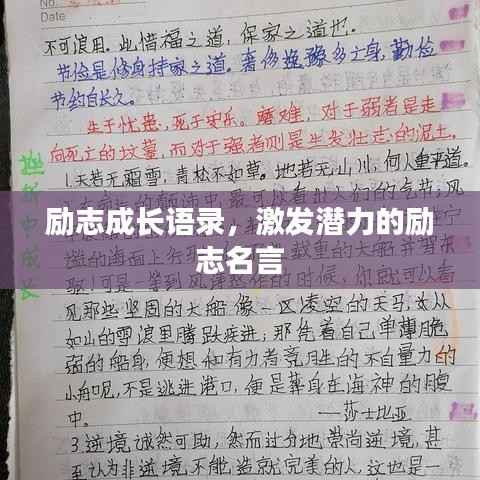 Date
不可浪用。此惜福之道，保家之道也.
节俭是修身持家之道。奢侈逸豫多亡身,勤俭
节约自长久。
生于忧患,死于安乐。磨难,对于弱者是走
向死亡的坟墓,而对于强者则是生发壮志的泥土。
挫折中成长
1.天若无霜雪,青松不如草。地若无山川,何人重平道。
励志成长语录，激发潜力的励
志名言
的时候,你就可以看
见那些坚固的大船像一区凌空的天马,从
如山的雪浪里腾跃疾进；那凭着自己单薄脆
弱的船身,便想和有力者竞胜的不自量力的
小船呢,不是逃进港口,便是葬身在海神的腹
中。
——莎士比亚
3.逆境诚然可助,然而过分地崇尚逆境,甚
至认为非逆境不能造就完美的人,这也是